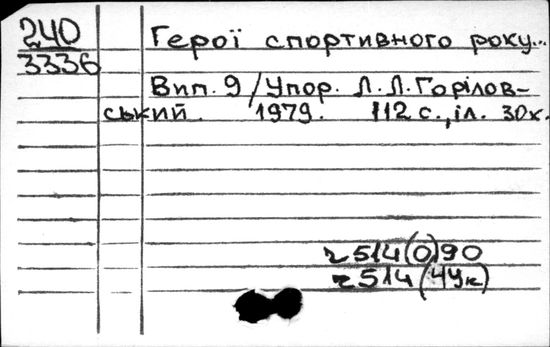 240
3336
Герої спортивного року...
Вип. 9 / Упор. Л. Л. Горілов-
ський. 1979. 112 с., іл. 30к.
ч 514(0)90
ч 514(4Ук)